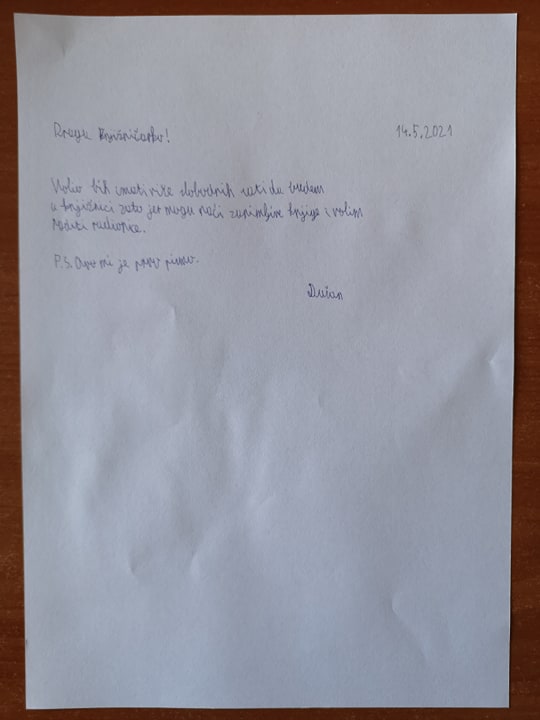 Draga knjižničarko! 14.5.2021
Volio bih imati više slobodnih sati da budem
u knjižnici zato jer mogu naći zanimljive knjige i volim
raditi radionice.
P.S. Ovo mi je prvo pismo.
Dušan